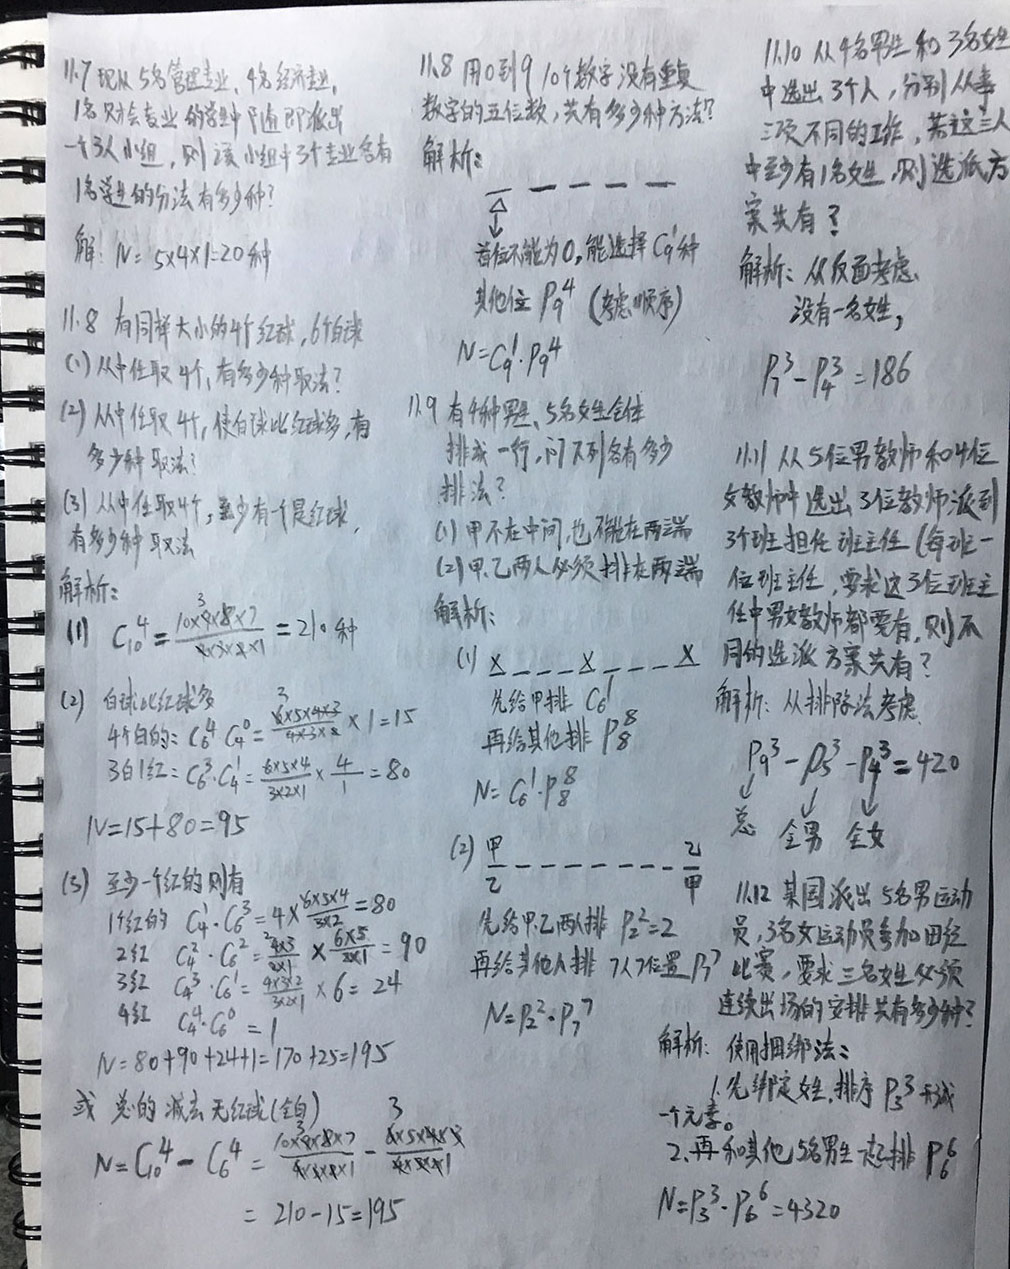 11.7 现从5名管理专业,4名经济专业,
1名财会专业的学生中随即派出
一个3人小组,则该小组中3个专业各有
1名学生的分法有多少种?
解: N=5×4×1=20种
11.8 有同样大小的4个红球,6个白球
(1)从中任取4个,有多少种取法?
(2)从中任取4个,使白球比红球多,有
多少种取法?
(3)从中任取4个,至少有一个是红球,
有多少种取法
解析:
(1) C₁₀⁴ = 10×9×8×7 / 4×3×2×1 = 210种
(2) 白球比红球多
4个白的: C₆⁴ C₄⁰ = 6×5×4×3 / 4×3×2 × 1 = 15
3白1红: C₆³·C₄¹ = 6×5×4 / 3×2×1 × 4/1 = 80
N=15+80=95
(3) 至少一个红的则有
1个红的 C₄¹·C₆³ = 4× 6×5×4 / 3×2 = 80
2红 C₄²·C₆² = 4×3 / 2×1 × 6×5 / 2×1 = 90
3红 C₄³·C₆¹ = 4×3×2 / 3×2×1 × 6 = 24
4红 C₄⁴·C₆⁰ = 1
N=80+90+24+1=170+25=195
或 总的减去无红球(全白)
N=C₁₀⁴ - C₆⁴ = 10×9×8×7 / 4×3×2×1 - 6×5×4×3 / 4×3×2×1
= 210-15=195
11.8 用0到9 10个数字没有重复
数字的五位数,共有多少种方法?
解析:
首位不能为0,能选择C₉¹种
其他位 P₉⁴ (考虑顺序)
N=C₉¹·P₉⁴
11.9 有4种男生、5名女生全体
排成一行,问下列各有多少
排法?
(1)甲不在中间,也不能在两端
(2)甲、乙两人必须排在两端
解析:
(1) X _ _ _ X _ _ _ X
先给甲排 C₆¹
再给其他排 P₈⁸
N=C₆¹·P₈⁸
(2) 甲 _ _ _ _ _ _ _ 乙
乙 甲
先给甲.乙两人排 P₂²=2
再给其他人排 7人7位置 P₇⁷
N=P₂²·P₇⁷
11.10 从4名男生和3名女生
中选出3个人,分别从事
三项不同的工作,若这三人
中至少有1名女生,则选派方
案共有?
解析: 从反面考虑.
没有一名女生,
P₇³-P₄³=186
11.11 从5位男教师和4位
女教师中选出3位教师派到
3个班担任班主任(每班一
位班主任,要求这3位班主
任中男女教师都要有,则不
同的选派方案共有?
解析: 从排除法考虑.
P₉³-P₅³-P₄³=420
总 全男 全女
11.12 某国派出5名男运动
员,3名女运动员参加田径
比赛,要求三名女生必须
连续出场的安排共有多少种?
解析: 使用捆绑法:
1.先绑定女生,排序 P₃³ 形成
一个元素。
2.再和其他5名男生一起排 P₆⁶
N=P₃³·P₆⁶=4320